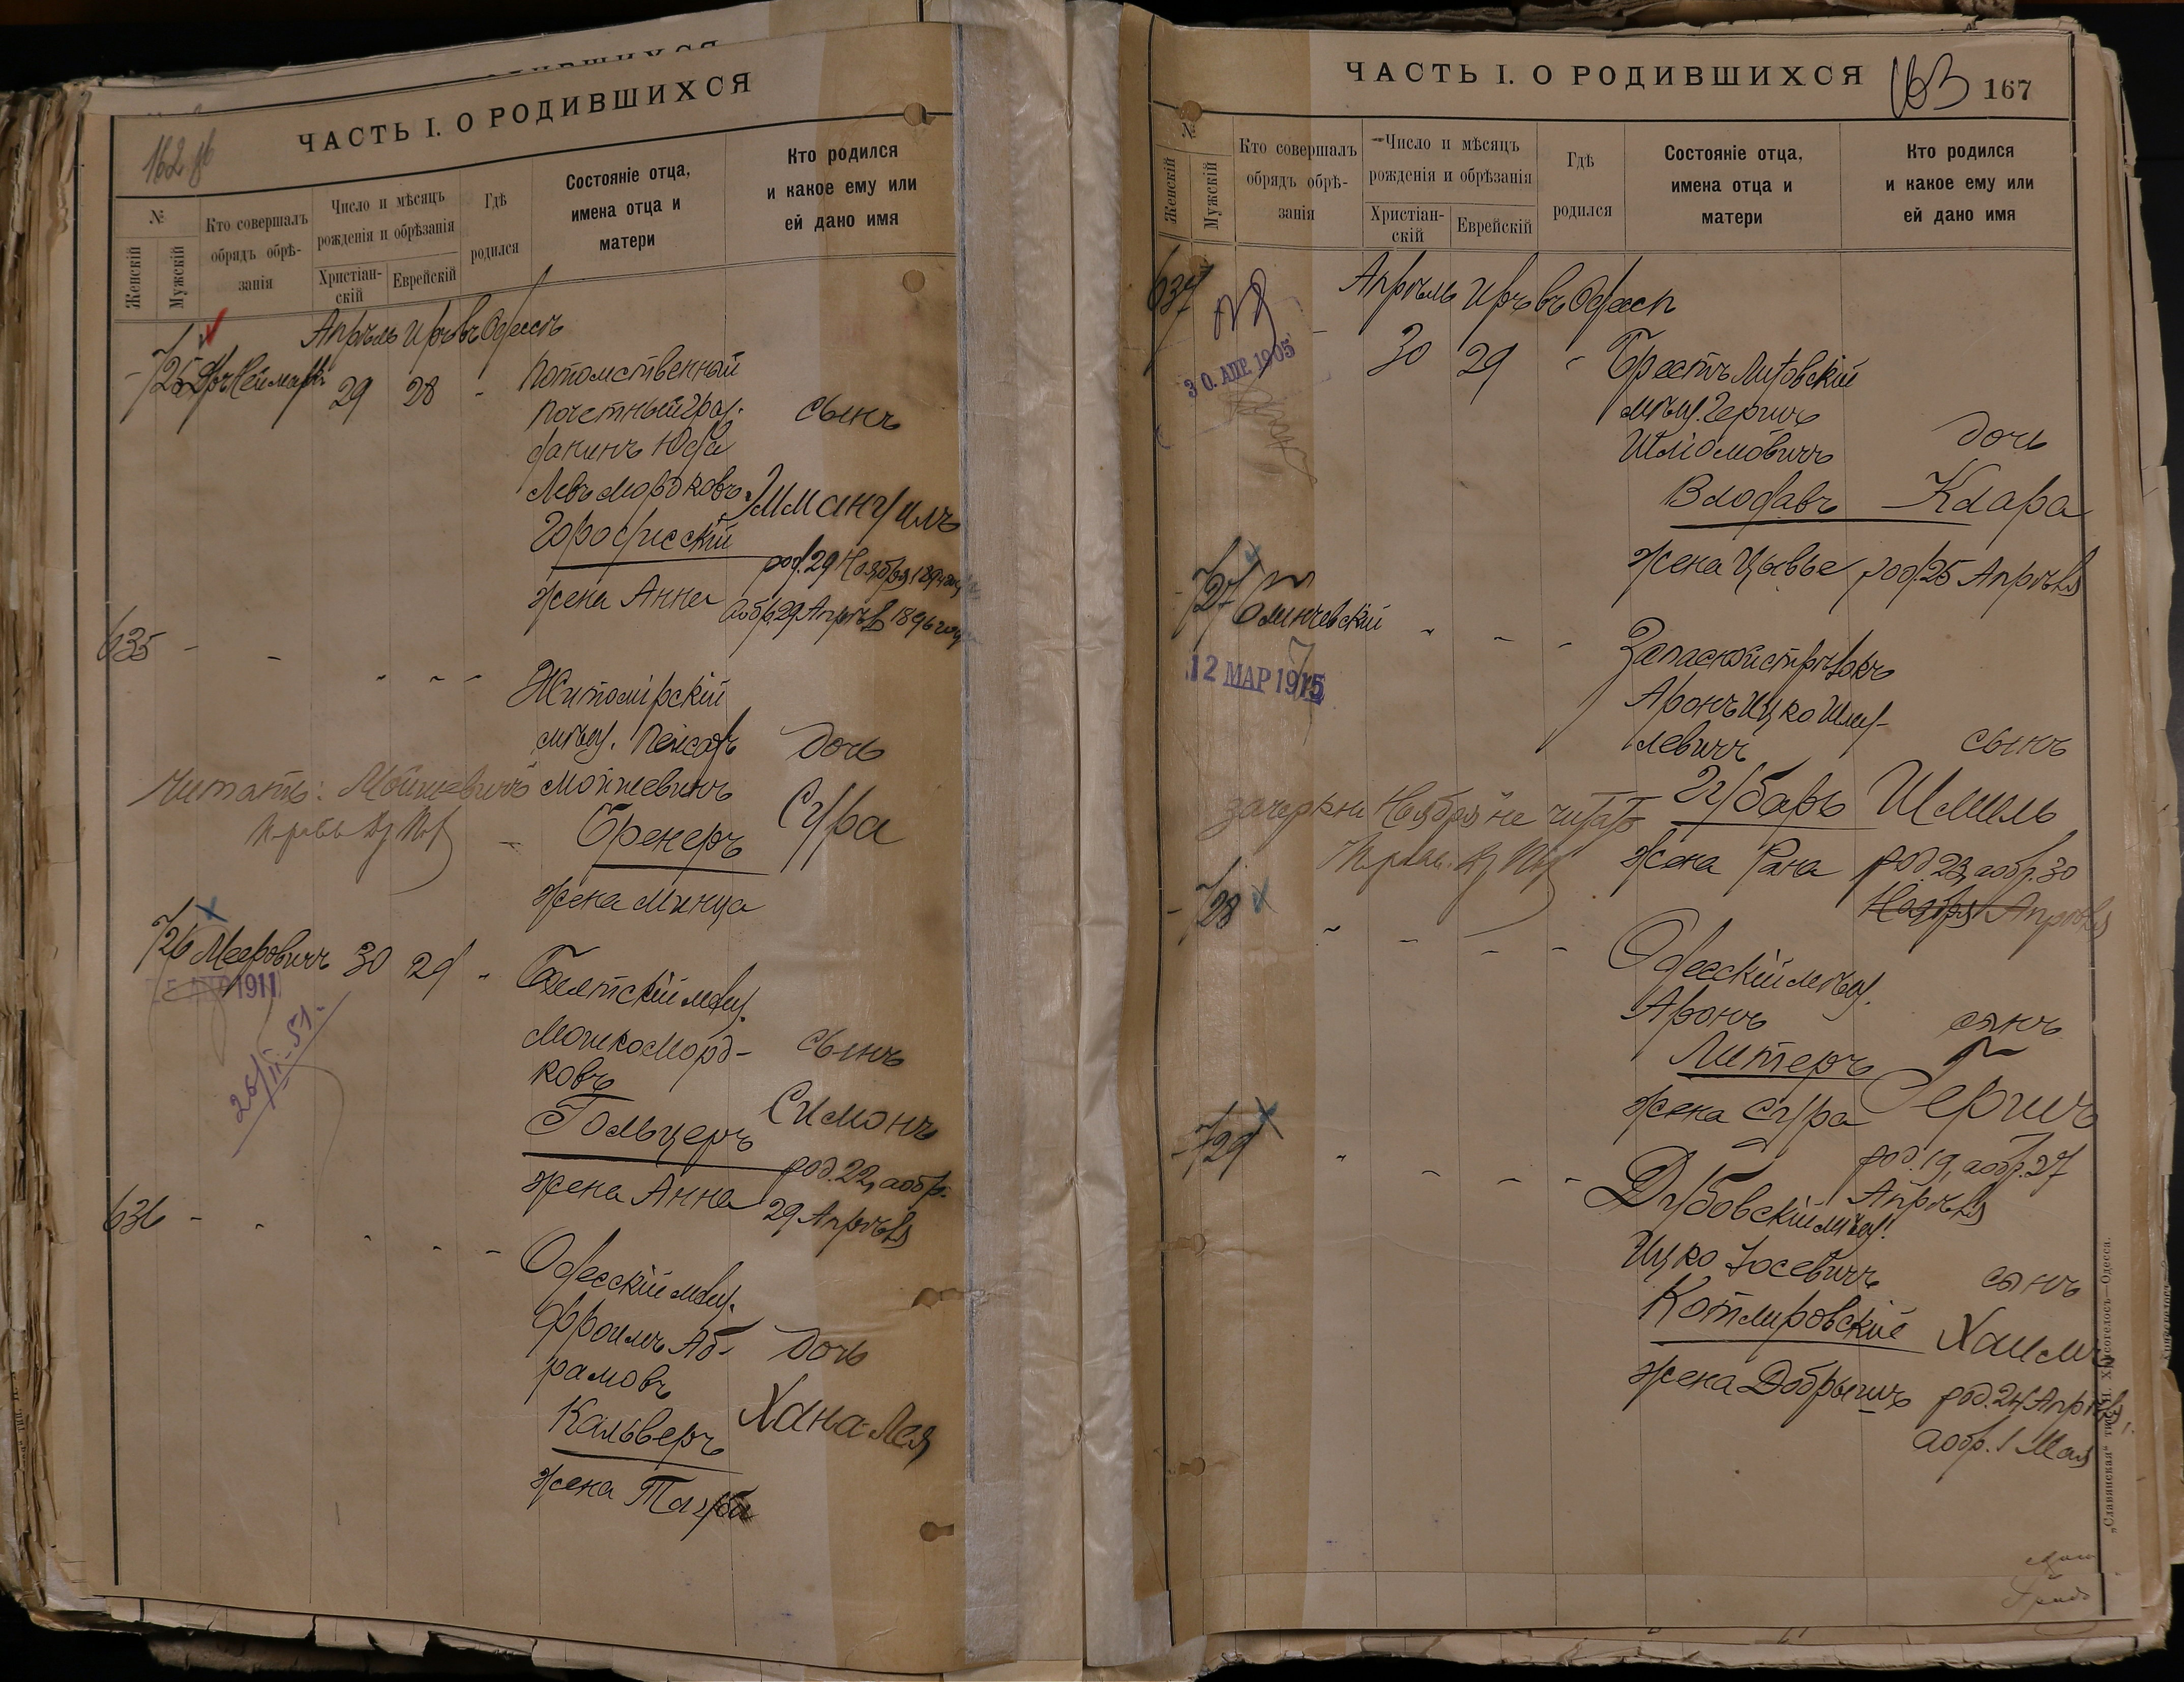 ЧАСТЬ I. О РОДИВШИХСЯ
№
Женскій
Мужскій
Кто совершалъ
обрядъ обрѣ-
занія
Число и мѣсяцъ
рожденія и обрѣзанія
Христіан-
скій
Еврейскій
Гдѣ
родился
Состояніе отца,
имена отца и
матери
Кто родился
и какое ему или
ей дано имя
Апрѣль Иръ въ Одессѣ
725
29 28
Потомственный
почетный граж-
данинъ Юда
Левъ Мордковъ
Городисскій
жена Анна
сынъ
Эммануилъ
род. 29 Ноября
а обр. 29 Апрѣля 1896 года
635
Житомірскій
мѣщ. Пейсахъ
Мойшевичъ
Бренеръ
жена Минца
дочь
Сура
Читать: "Мойшевичъ"
726 Мееровичъ 30 29
1911
26/II-51.
Балтскій мѣщ.
Мошко Морд-
ковъ
Гольцеръ
жена Анна
сынъ
Симонъ
род. 22, а обр.
29 Апрѣля
636
Одесскій мѣщ.
Фроимъ Аб-
рамовъ
Кальверъ
жена
дочь
Хана-Лея
ЧАСТЬ I. О РОДИВШИХСЯ
163
167
№
Женскій
Мужскій
Кто совершалъ
обрядъ обрѣ-
занія
Число и мѣсяцъ
рожденія и обрѣзанія
Христіан-
скій
Еврейскій
Гдѣ
родился
Состояніе отца,
имена отца и
матери
Кто родился
и какое ему или
ей дано имя
637
Апрѣль Иръ въ Одессѣ
30. АПР. 1905
30 29
Брестъ Литовскій
мѣщ. Гершъ
Шліомовичъ
Влодавъ
жена Цывье
дочь
Клара
род. 25 Апрѣля
727
12 МАР 1915
Запасной стрѣлокъ
Аронъ Ицко Шму-
левичъ
Губаръ
жена Рана
сынъ
Шмиль
род. 23, а обр. 30
Ноября Апрѣля
зачеркн. "Ноября" не читать
728
Одесскій мѣщ.
Аронъ
Литеръ
жена Сура
сынъ
Гершъ
род. 19, а обр. 27
Апрѣля
729
Дубовскій мѣщ.
Ицко Іосевичъ
Котляровскій
жена Добрышъ
сынъ
Хаимъ
род. 24 Апрѣля,
а обр. 1 Мая
„Славянская“ тип. Н. Хрисогелосъ—Одесса.